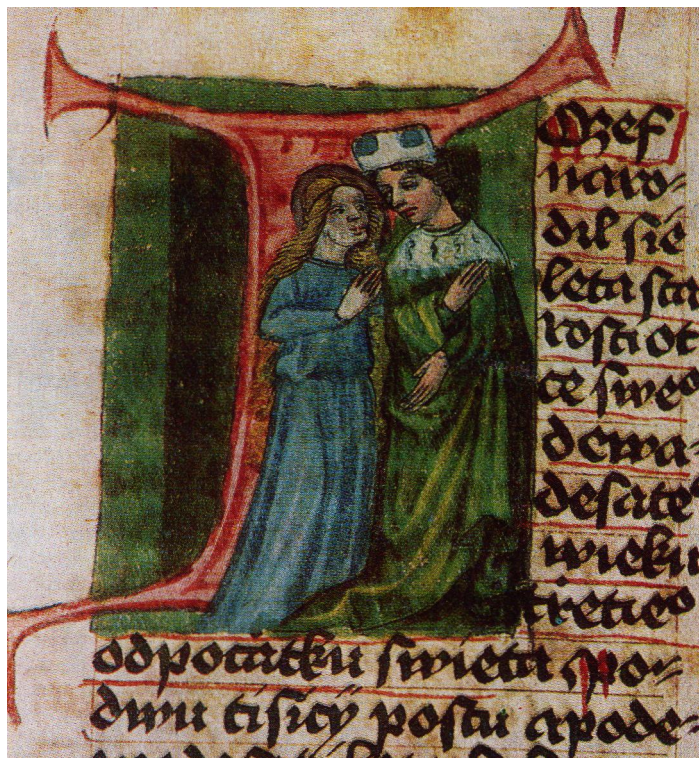 Ozef
naro-
dil sie
leta sta
rosti ot
ce sweo
dewa-
desate
wieku
tretieo
odpocatku swieta po-
dwu tisicy postu apode-